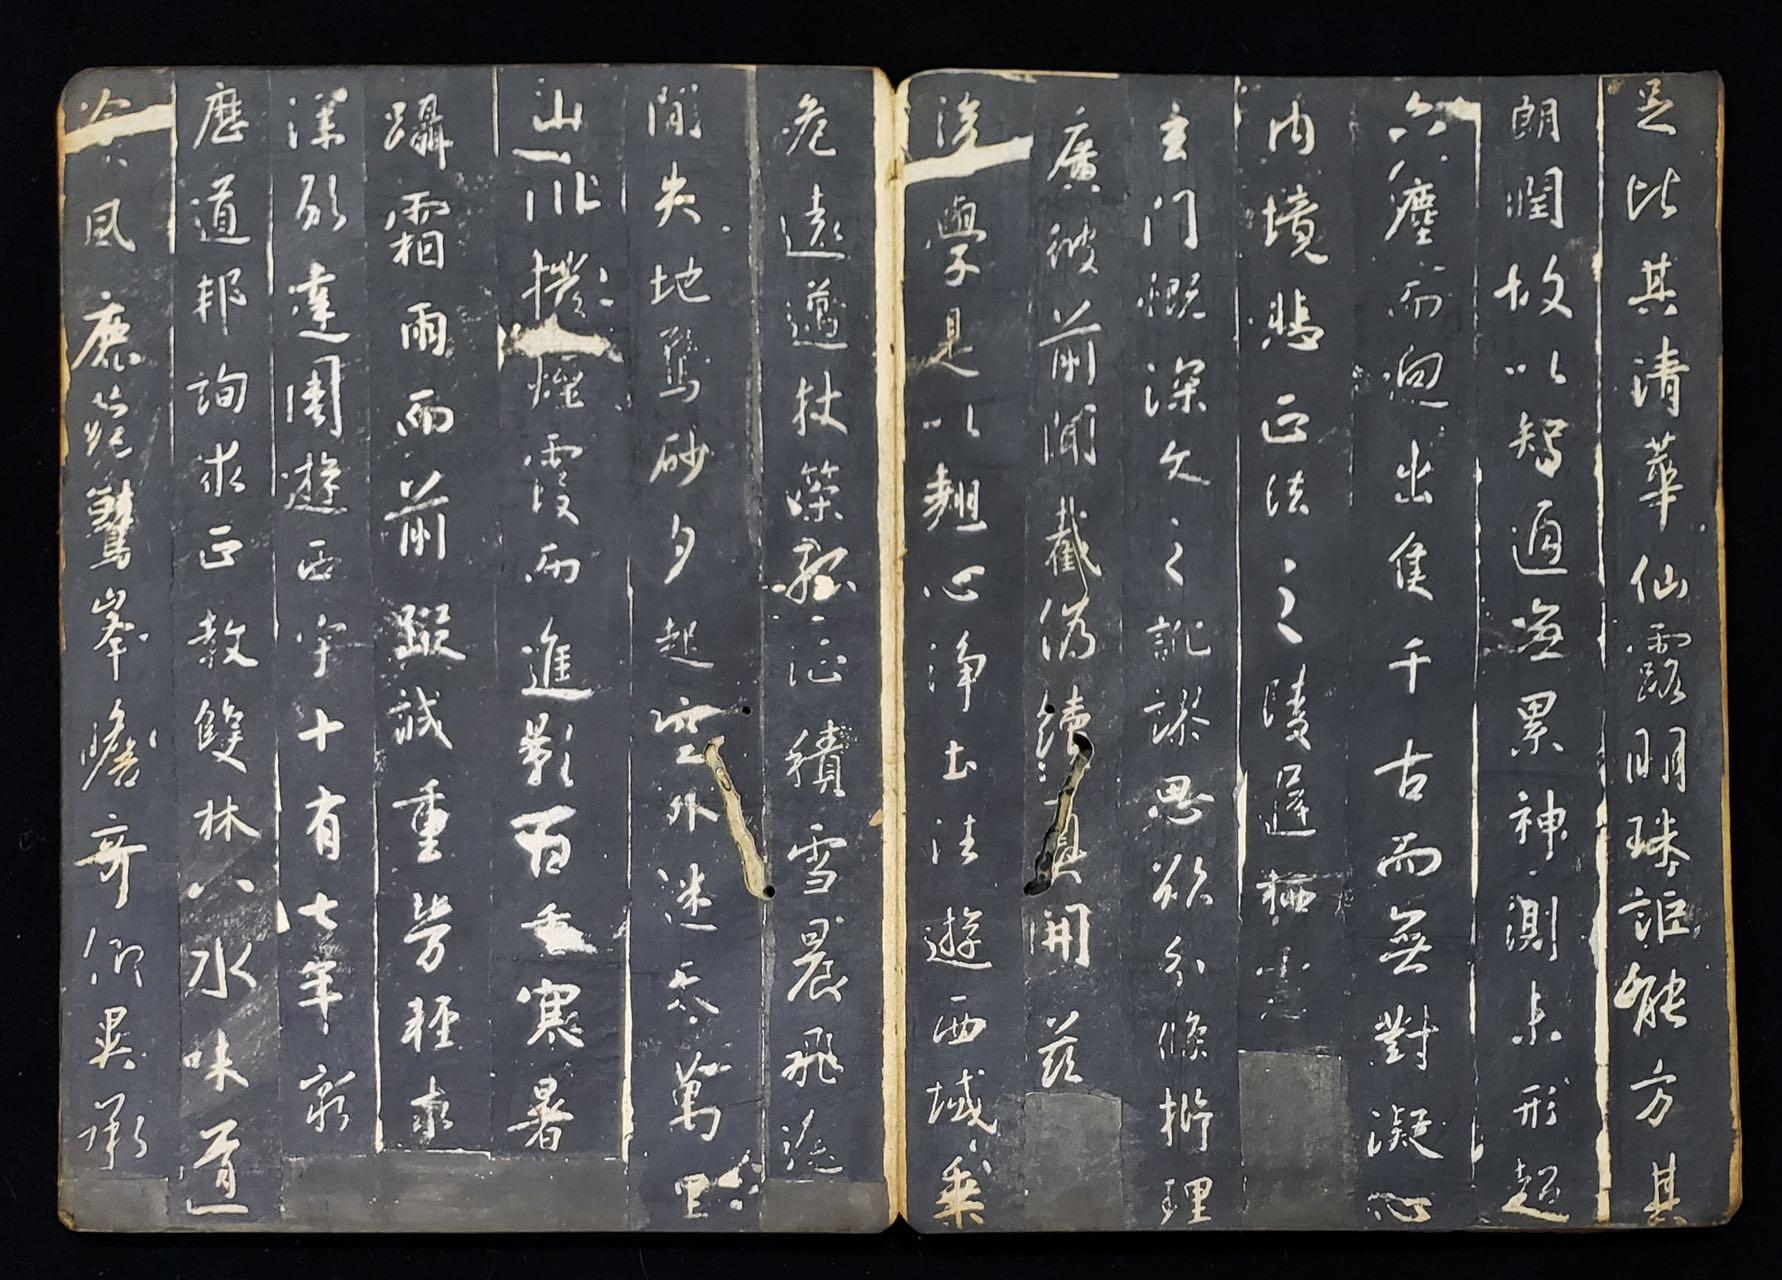 足比其清華仙露明珠詎能方其
朗潤故以智通無累神測未形超
六塵而迥出隻千古而無對凝心
內境悲正法之陵遲栖慮
玄門慨深文之訛謬思欲分條析理
廣彼前聞截偽續真開茲
後學是以翹心淨土法遊西域乘
危遠邁杖策孤征積雪晨飛途
閒失地驚砂夕起空外迷天萬里
山川撥煙霞而進影百重寒暑
躡霜雨而前蹤誠重勞輕求
深願達周遊西宇十有七年窮
歷道邦詢求正教雙林八水味道
飡風鹿菀鷲峯瞻奇仰異承